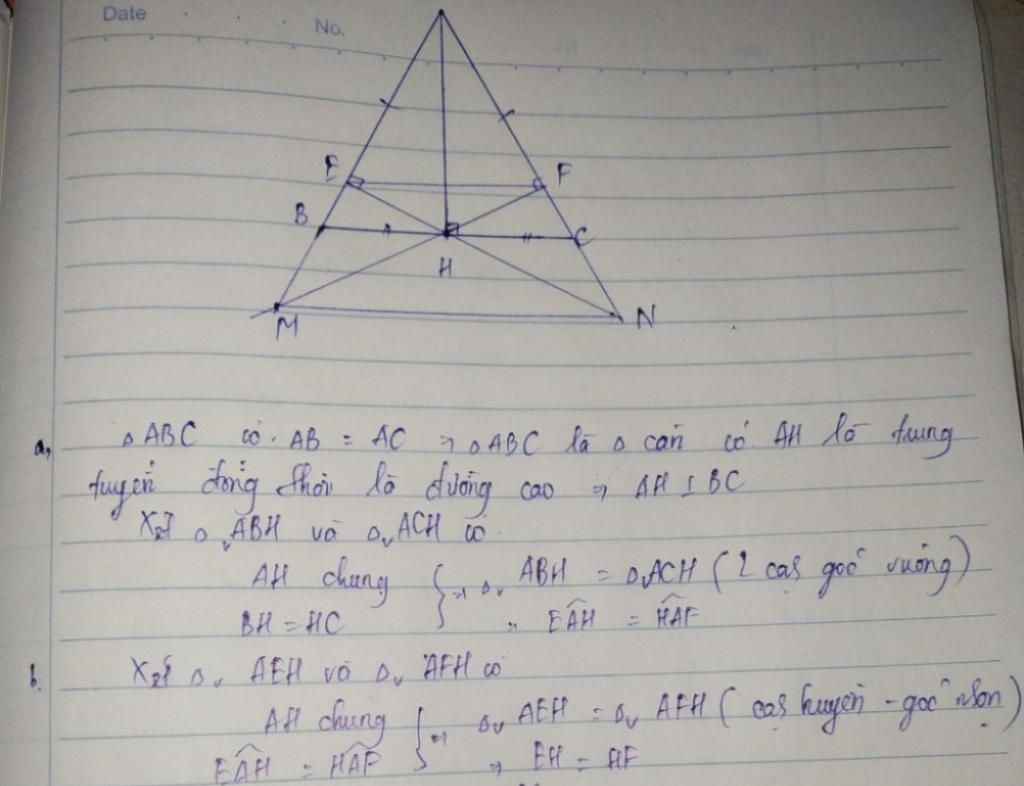 Date
No.
E
F
B
C
H
M
N
a, △ABC có. AB = AC ⇒ △ABC là △ cân có AH là trung
tuyến đồng thời là đường cao ⇒ AH ⊥ BC
Xét △v ABH và △v ACH có
AH chung } ⇒ △v ABH = △v ACH (2 cạh góc vuông)
BH = HC ⇒ EÂH = HÂF
b. Xét △v AEH và △v AFH có
AH chung } ⇒ △v AEH = △v AFH (cạh huyền - góc nhọn)
EÂH = HÂF ⇒ EH = HF